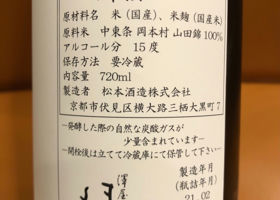 原材料名 米(国産)、米麹(国産米)
原料米 中東条 岡本村 山田錦100%
アルコール分 15度
保存方法 要冷蔵
内容量 720ml
製造者 松本酒造株式会社
京都市伏見区横大路三栖大黒町7
―発酵した際の自然な炭酸ガスが
少量含まれています―
―開栓後は立てて冷蔵庫にて保管して下さい―
製造年月
(瓶詰年月)
21.02
澤屋